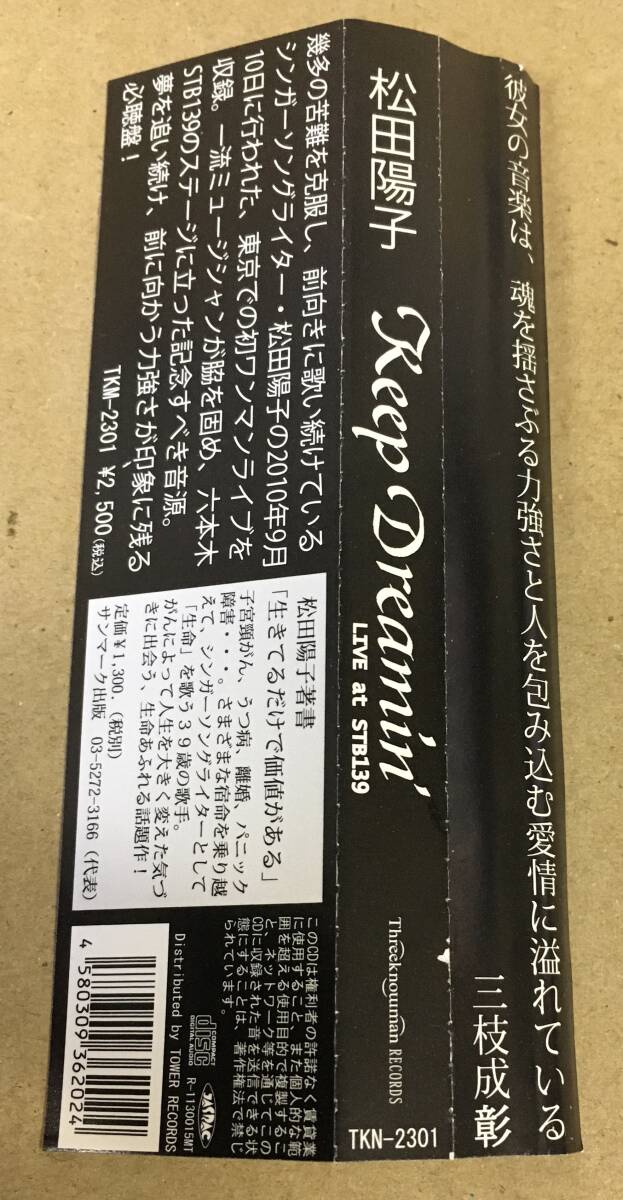 彼女の音楽は、魂を揺さぶる力強さと人を包み込む愛情に溢れている
三枝成彰
松田陽子
Keep Dreamin'
LIVE at STB139
Threeknowman RECORDS
TKN-2301
幾多の苦難を克服し、前向きに歌い続けている
シンガーソングライター・松田陽子の2010年9月
10日に行われた、東京での初ワンマンライブを
収録。一流ミュージシャンが脇を固め、六本木
STB139のステージに立った記念すべき音源。
夢を追い続け、前に向かう力強さが印象に残る
必聴盤！
TKM-2301 ¥2,500(税込)
松田陽子著書
「生きてるだけで価値がある」
子宮頸がん、うつ病、離婚、パニック
障害・・・。さまざまな宿命を乗り越
えて、シンガーソングライターとして
「生命」を歌う39歳の歌手。
がんによって人生を大きく変えた気づ
きに出会う、生命あふれる話題作！
定価¥1,300.(税別)
サンマーク出版 03-5272-3166(代表)
このCDは権利者の許諾なく賃貸業
に使用すること、また個人的な範
囲を超える使用目的で複製するこ
と、ネットワーク等を通じてこの
CDに収録された音を送信できる状
態にすることは、著作権法で禁じ
られています。
COMPACT
disc
DIGITAL AUDIO
JASRAC
R-1130015MT
Distributed by TOWER RECORDS
4 580309 362024